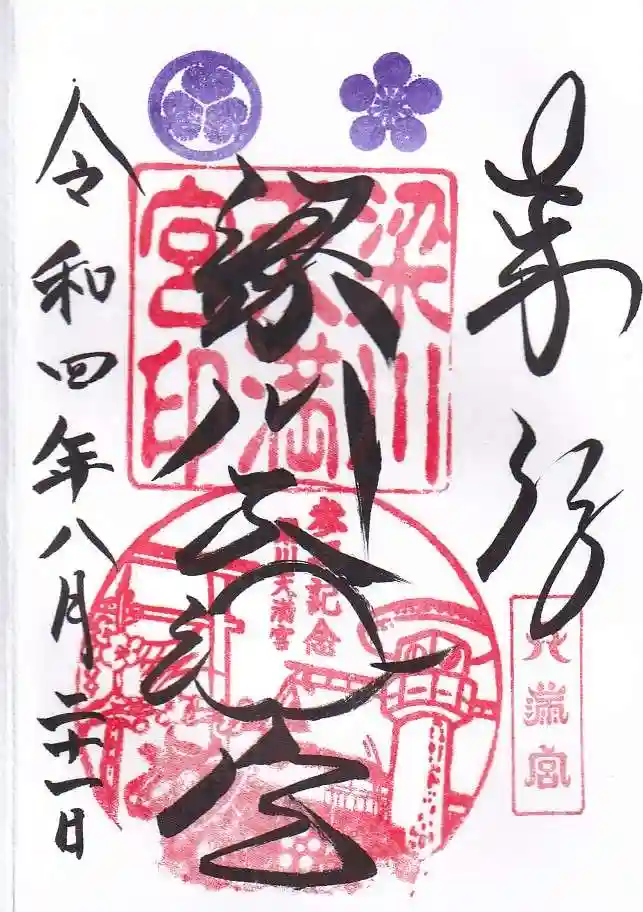 奉拝
天満宮
梁川天満宮
梁川
天満
宮印
参拝記念
梁川天満宮
令和四年八月二十一日